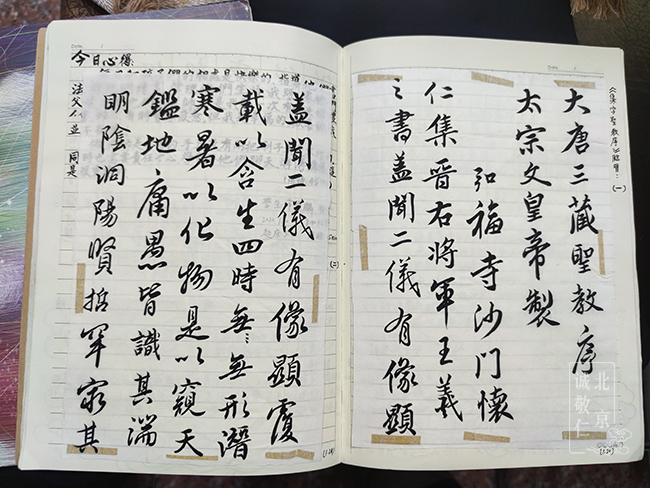 《集字聖教序》臨習：(一)
大唐三藏聖教序
太宗文皇帝製
弘福寺沙门懷
仁集晉右將軍王羲
之書蓋聞二儀有像顯
(二)
蓋聞二儀有像顯覆
載以含生四時無無形潛
寒暑以化物是以窺天
鑑地庸愚皆識其端
明陰洞陽賢哲罕窮其
今日心得:
同是
北京
诚敬仁